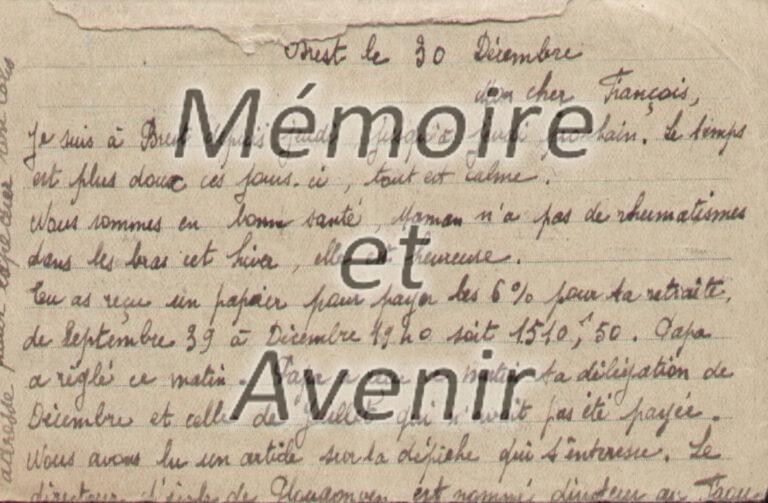 Brest le 30 Décembre
Mon cher François,
Je suis à Brest depuis jeudi, jusqu'à jeudi prochain. Le temps
est plus doux ces jours-ci, tout est calme.
Nous sommes en bonne santé, Maman n'a pas de rhumatismes
dans les bras cet hiver, elle est heureuse.
Tu as reçu un papier pour payer les 6% pour ta retraite,
de Septembre 39 à Décembre 1940 soit 1510f,50. Papa
a réglé ce matin. Papa a ce matin ta délégation de
Décembre et celle de Juillet qui n'avait pas été payée.
Nous avons lu un article sur la dépêche qui t'intéresse. Le
directeur d'école de Plougonven est nommé directeur au
adresse pour expédier
Mémoire
et
Avenir